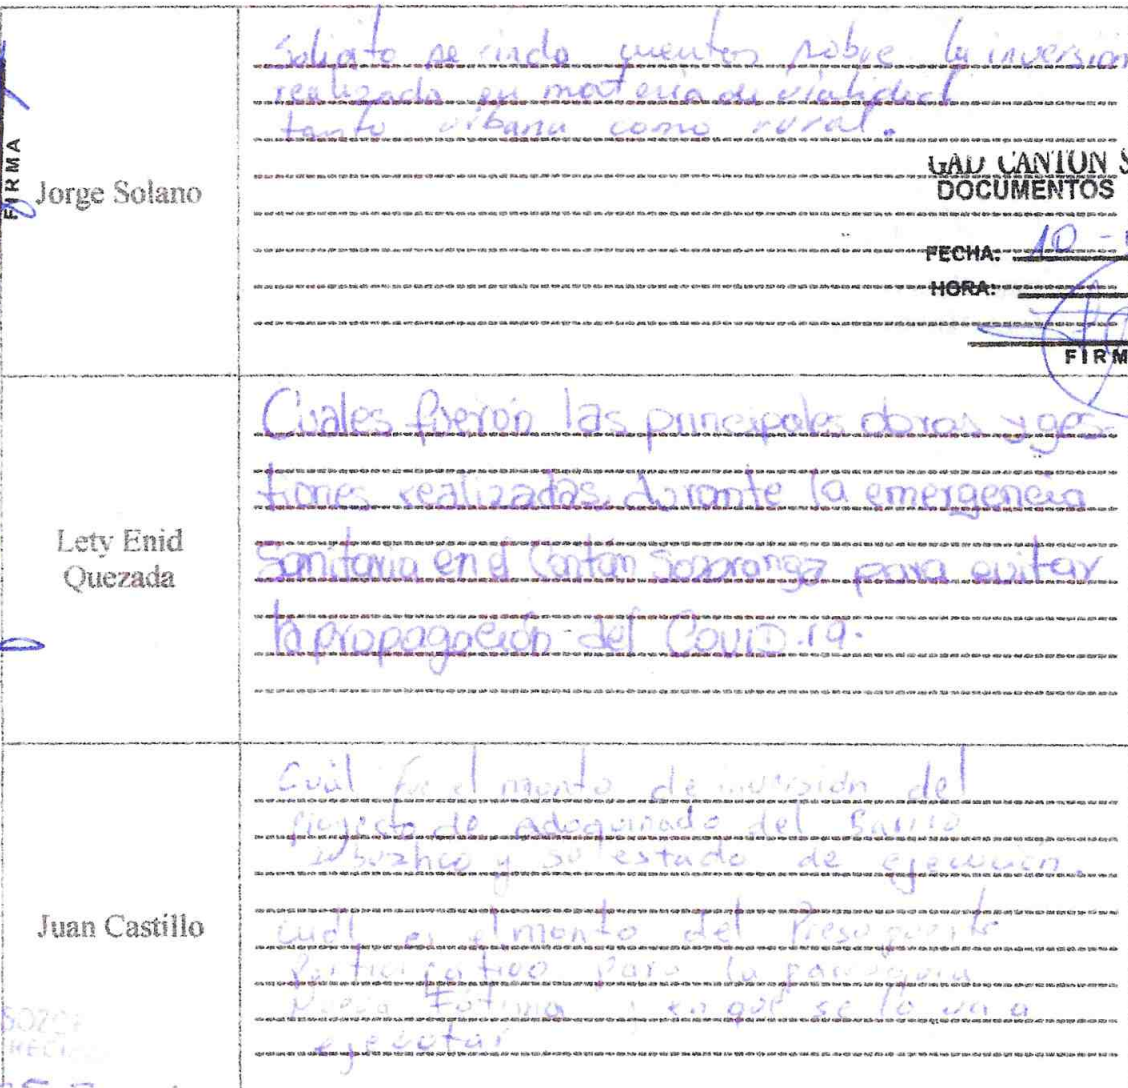 Solicito se rinda cuentas sobre la inversion
realizada en materia de vialidad
tanto urbana como rural.
FIRMA
Jorge Solano
GAD CANTON S
DOCUMENTOS
FECHA: 10 -
HORA:
FIRM
Cuales fueron las principales obras y ges-
tiones realizadas, durante la emergencia
Lety Enid
Quezada
Sanitaria en el Cantón Sozoranga para evitar
la propagación del Covid-19.
Cuál fue el monto de inversión del
Proyecto de Adoquinado del Barrio
y su estado de ejecución.
Juan Castillo
Cuál es el monto del Presupuesto
Participativo Para la parroquia
Nueva Fátima y en qué se lo va a
ejecutar